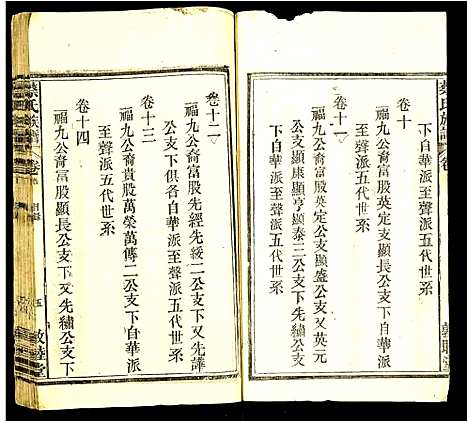 蔡氏族譜
卷
敦睦堂
下自華派至聲派五代世系
卷十
福九公裔富股英定公支顯長公支下自華派
至聲派五代世系
卷十一
福九公裔富股英定公支顯盛公支又英元
公支顯康顯亨顯泰三公支下又先繡公支
下自華派至聲派五代世系
卷十二
福九公裔富股先經先綬二公支下又先譁
公支下俱各自華派至聲派五代世系
卷十三
福九公裔貴股萬榮萬傳二公支下自華派
至聲派五代世系
卷十四
福九公裔富股顯長公支下又先繡公支下
蔡氏族譜
卷
目錄
五
敦睦堂